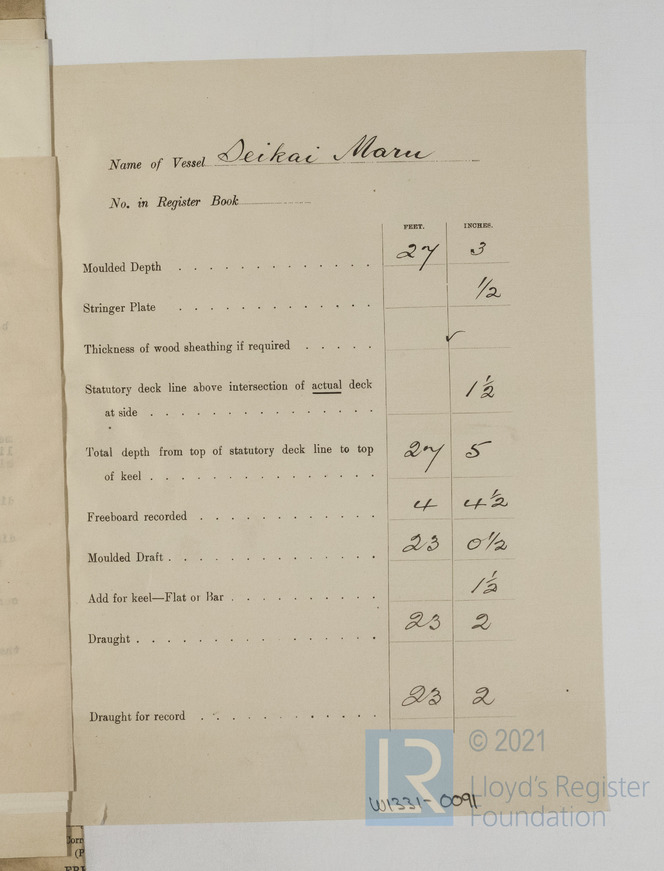 Name of Vessel Seikai Maru
No. in Register Book
FEET. INCHES.
Moulded Depth . . . . . . . . . . . . . 27 3
Stringer Plate . . . . . . . . . . . . . 1/2
Thickness of wood sheathing if required . . . . . ✓
Statutory deck line above intersection of actual deck
at side . . . . . . . . . . . . . . 1 1/2
Total depth from top of statutory deck line to top
of keel . . . . . . . . . . . . . . 27 5
Freeboard recorded . . . . . . . . . . . . 4 4 1/2
Moulded Draft . . . . . . . . . . . . . . 23 0 1/2
Add for keel—Flat or Bar . . . . . . . . . . 1 1/2
Draught . . . . . . . . . . . . . . . . 23 2
Draught for record . . . . . . . . . . . . 23 2
LR
© 2021
Lloyd's Register
Foundation
W1331-0091